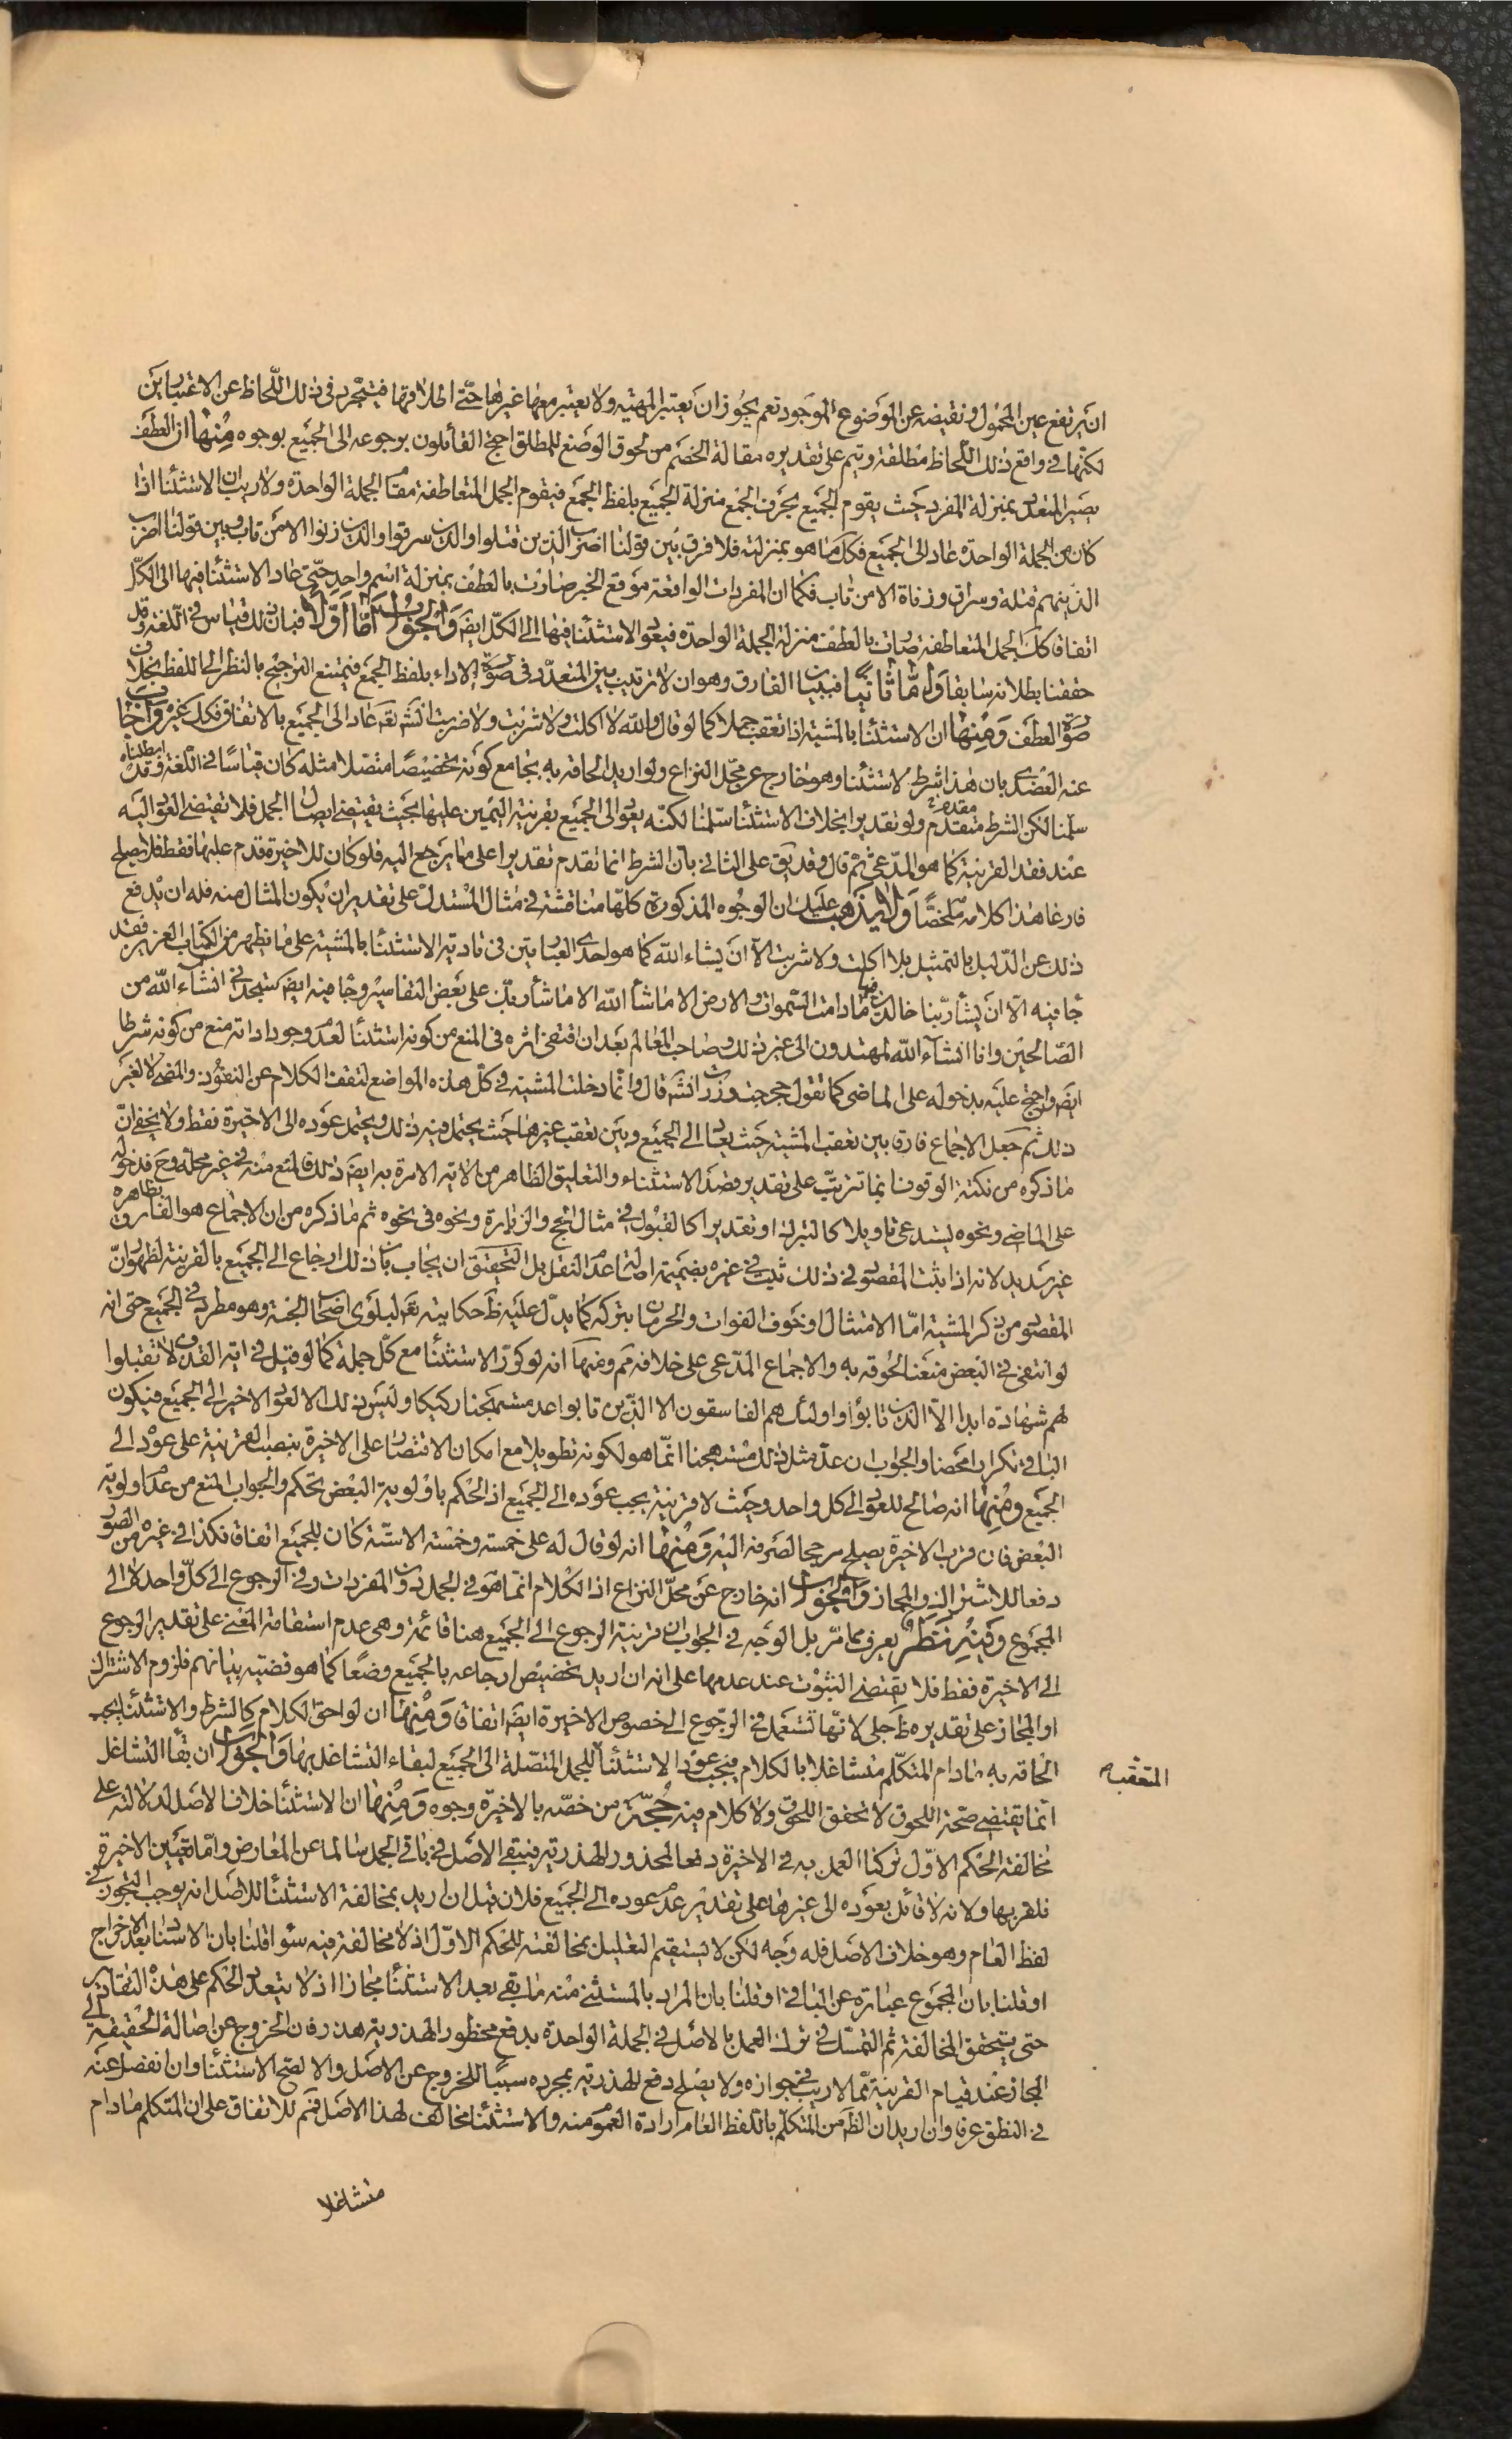 ان يرتفع عين المحمول ونقيضه عن الموضوع الموجود نعم يجوز ان يعتبر المهية ولا يعتبر معها غيرها حتى اطلاقها فيتجرد في ذلك اللحاظ عن الاعتبارين
لكنها في واقع ذلك اللحاظ مطلقة ويتم على تقديره مقالة الخصم من لحوق الوضع للمطلق احتج القائلون برجوعه الى الجميع بوجوه منها ان العطف
يصير المتعدد بمنزلة المفرد حيث يقوم الجميع بحرف الجمع منزلة الجميع بلفظ الجمع فيقوم الجمل المتعاطفة مقام الجملة الواحدة ولا ريب ان الاستثناء اذا
كان من الجملة الواحدة عاد الى الجميع فكك ما هو بمنزلته فلا فرق بين قولنا اضرب الذين قتلوا والذين سرقوا والذين زنوا الا من تاب وبين قولنا اضرب
الذين هم قتلة وسراق وزناة الا من تاب فكما ان المفردات الواقعة موقع الخبر صارت بالعطف بمنزلة اسم واحد حتى عاد الاستثناء فيها الى الكل
اتفاقا كك الجمل المتعاطفة صارت بالعطف منزلة الجملة الواحدة فيعود الاستثناء فيها الى الكل ايض والجواب اما اولا فبان ذلك قياس في اللغة وقد
حققنا بطلانه سابقا واما ثانيا فببيان الفارق وهو ان لا ترتيب بين المتعدد في صورة الاداء بلفظ الجمع فيمتنع الترجيح بالنظر الى اللفظ بخلاف
صورة العطف ومنها ان الاستثناء بالمشية اذا تعقب جملا كما لو قال والله لا اكلت ولا شربت ولا ضربت انشه تعه عاد الى الجميع بالاتفاق فكك غيره واجاب
عنه العضدي بان هذا شرط لا استثناء وهو خارج عن محل النزاع ولو اريد الحاقه به بجامع كونه تخصيصا متصلا مثله كان قياسا في اللغة وقد ابطلناه
سلمنا لكن الشرط متقدم مقدم ولو تقديرا بخلاف الاستثناء سلمنا لكنه يعود الى الجميع بقرينة اليمين عليها بحيث يقتضي ايصال الجمل فلا تقتضي العود اليه
عند فقد القرينة كما هو المدعى ثم قال وقد يق على الثاني بان الشرط انما تقدم تقديرا على ما يرجع اليه فلو كان للاخيرة قدم عليها فقط فلا يصلح
فارقا هذا كلامه ملخصا ولا يذهب عليك ان الوجوه المذكورة كلها مناقشة في مثال المستدل على تقدير ان يكون المثال منه فله ان يدفع
ذلك عن الدليل بالتمثيل بلا اكلت ولا شربت الا ان يشاء الله كما هو احدى العبارتين في تادية الاستثناء بالمشية على ما يظهر من الكتاب العزيز فقد
جاء فيه الا ان يشاء ربنا خالدين فيها ما دامت السموات والارض الا ما شاء الله الا ما شاء ربك على بعض التفاسير وجاء فيه ايض ستجدني انشاء الله من
الصالحين وانا انشاء الله لمهتدون الى غير ذلك وصاحب المعالم بعد ان اقتفى اثره في المنع من كونه استثناء لعدم وجود اداته منع من كونه شرطا
ايض واحتج عليه بدخوله على الماضي كما تقول حججت وزرت انشه قال وانما دخلت المشية في كل هذه المواضع لتقف الكلام عن النفوذ والمضي لا لغير
ذلك ثم جعل الاجماع فارقا بين تعقب المشية حيث يعاد الى الجميع وبين تعقب غيرها حيث يحتمل فيه ذلك ويحتمل عوده الى الاخيرة فقط ولا يخفى ان
ما ذكره من نكتة الوقوف انما تترتب على تقدير قصد الاستثناء والتعليق الظاهر من الاية الامرة به ايض ذلك فالمنع منه في غير محله وح فدخوله
على الماضي ونحوه يستدعي تاويلا كالتبرك او تقديرا كالقبول في مثال الحج والزيارة ونحوه في نحوه ثم ما ذكره من ان الاجماع هو الفارق بظاهره
غير سديد لانه اذا ثبت المقصود في ذلك ثبت في غيره بضميمة اصالة عدم النقل بل التحقيق ان يجاب بان ذلك ارجاع الى الجميع بالقرينة لظهور ان
المقصود من ذكر المشية اما الامتثال او خوف الفوات والحرمان بتركه كما يدل عليه ظ حكايته تعه لبلوى اصحاب الجنة وهو مطرد في الجميع حتى انه
لو انتفى في البعض منعنا لحوقه به والاجماع المدعى على خلافه مم ومنها انه لو كرر الاستثناء مع كل جملة كما لو قيل في اية القذف لا تقبلوا
لهم شهادة ابدا الا الذين تابوا واولئك هم الفاسقون الا الذين تابوا عد مستهجنا ركيكا وليس ذلك الا لعود الاخير الى الجميع فيكون
الباقي تكرارا محضا والجواب ان عد مثل ذلك مستهجنا انما هو لكونه تطويلا مع امكان الاقتصار على الاخيرة بنصب القرينة على عوده الى
الجميع ومنها انه صالح للعود الى كل واحد وحيث لا قرينة يجب عوده الى الجميع اذ الحكم باولوية البعض تحكم والجواب المنع من عدم اولوية
البعض فان قرب الاخيرة يصلح مرجحا لصرفه اليه ومنها انه لو قال له على خمسة وخمسة الا ستة كان للجميع اتفاقا فكذا في غيره من الصور
دفعا للاشتراك والمجاز والجواب انه خارج عن محل النزاع اذ الكلام انما هو في الجمل دون المفردات وفي الرجوع الى كل واحد لا الى
المجموع وفيه نظر يعرف مما مر بل الوجه في الجواب ان قرينة الرجوع الى الجميع هنا قائمة وهي عدم استقامة المعنى على تقدير الرجوع
الى الاخيرة فقط فلا يقتضي الثبوت عند عدمها على انه ان اريد تخصيص ارجاعه بالجميع وضعا كما هو قضية بيانهم فلزوم الاشتراك
او المجاز على تقديره ظ جلي لانها تستعمل في الرجوع الى خصوص الاخيرة ايض اتفاقا ومنها ان لواحق الكلام كالشرط والاستثناء يجب
الحاقه به ما دام المتكلم متشاغلا بالكلام فيجب عود الاستثناء للجمل المتصلة الى الجميع لبقاء التشاغل بها والجواب ان بقاء التشاغل
المتعقبه
انما يقتضي صحة اللحوق لا تحقق اللحوق ولا كلام فيه حجة من خصه بالاخيرة وجوه ومنها ان الاستثناء خلاف الاصل لدلالته على
مخالفة الحكم الاول تركنا العمل به في الاخيرة دفعا لمحذور الهذرية فيبقى الاصل في باقي الجمل سالما عن المعارض واما تعيين الاخيرة
فلقربها ولانه لا قائل بعوده الى غيرها على تقدير عدم عوده الى الجميع فلان قيل ان اريد بمخالفة الاستثناء للاصل انه يوجب التجوز في
لفظ العام وهو خلاف الاصل فله وجه لكن لا يستقيم التعليل بمخالفته للحكم الاول اذ لا مخالفة فيه سواء قلنا بان الاسناد بعد الاخراج
او قلنا بان المجموع عبارة عن الباقي او قلنا بان المراد بالمستثنى منه ما بقي بعد الاستثناء مجازا اذ لا يتعدد الحكم على هذه التقادير
حتى يتحقق المخالفة ثم التمسك في ترك العمل بالاصل في الجملة الواحدة بدفع محظور الهذرية هذر فان الخروج عن اصالة الحقيقة الى
المجاز عند قيام القرينة مما لا ريب في جوازه ولا يصلح دفع الهذرية بمجرده سببا للخروج عن الاصل والا لصح الاستثناء وان انفصل عنه
في النطق عرفا وان اريد ان الظ من المتكلم باللفظ العام ارادة العموم منه والاستثناء مخالف لهذا الاصل فمم للاتفاق على ان المتكلم ما دام
متشاغلا